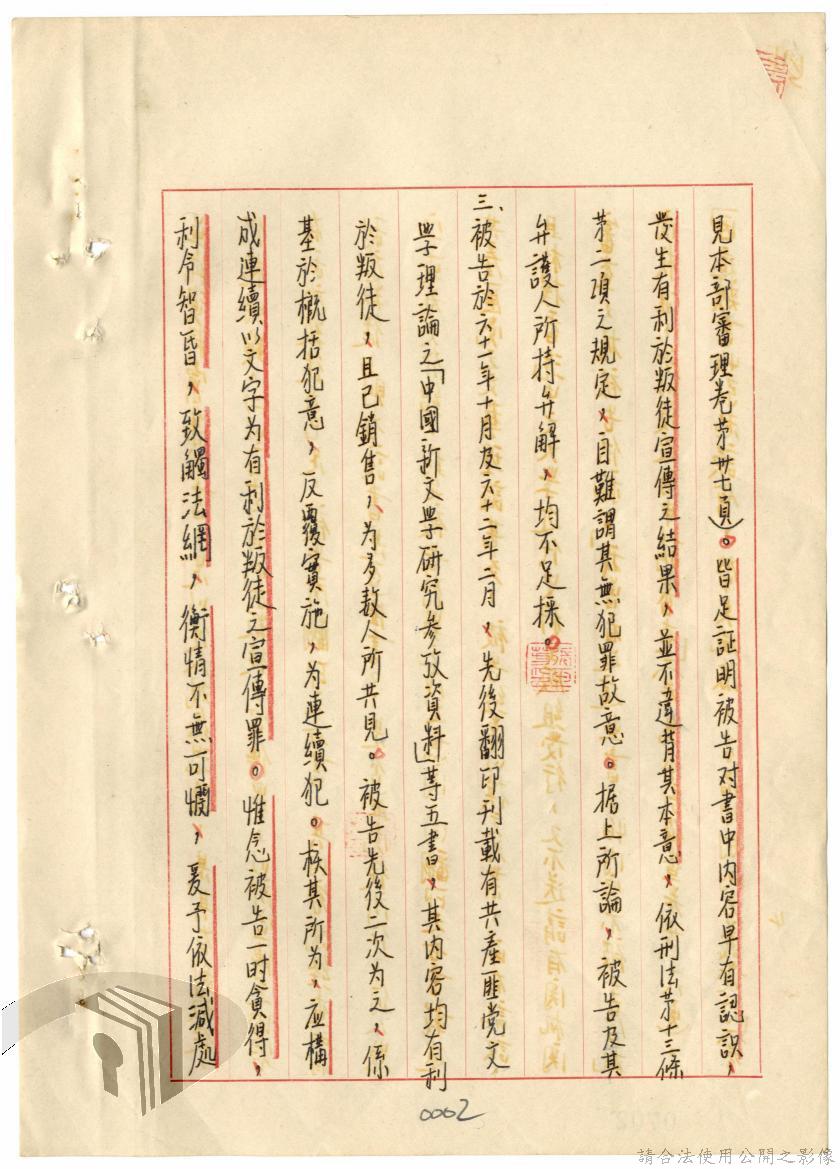 見本部審理卷茅卅七頁）。皆足証明被告对書中內容早有認識，
發生有利於叛徒宣傳之結果，並不違背其本意，依刑法茅十三條
茅二項之規定，自難謂其無犯罪故意。据上所論，被告及其
弁護人所持弁解，均不足採。
三、被告於六十一年十月及六十二年二月，先後翻印刊載有共產匪党文
學理論之「中國新文學研究參攷資料」等五書，其內容均有利
於叛徒，且已銷售，为多数人所共見。被告先後二次为之，係
基於概括犯意，反覆實施，为連續犯。核其所为，应構
成連續以文字为有利於叛徒之宣傳罪。惟念被告一时貪得，
利令智昏，致觸法網，衡情不無可憫，爰予依法減處
0002
請合法使用公開之影像